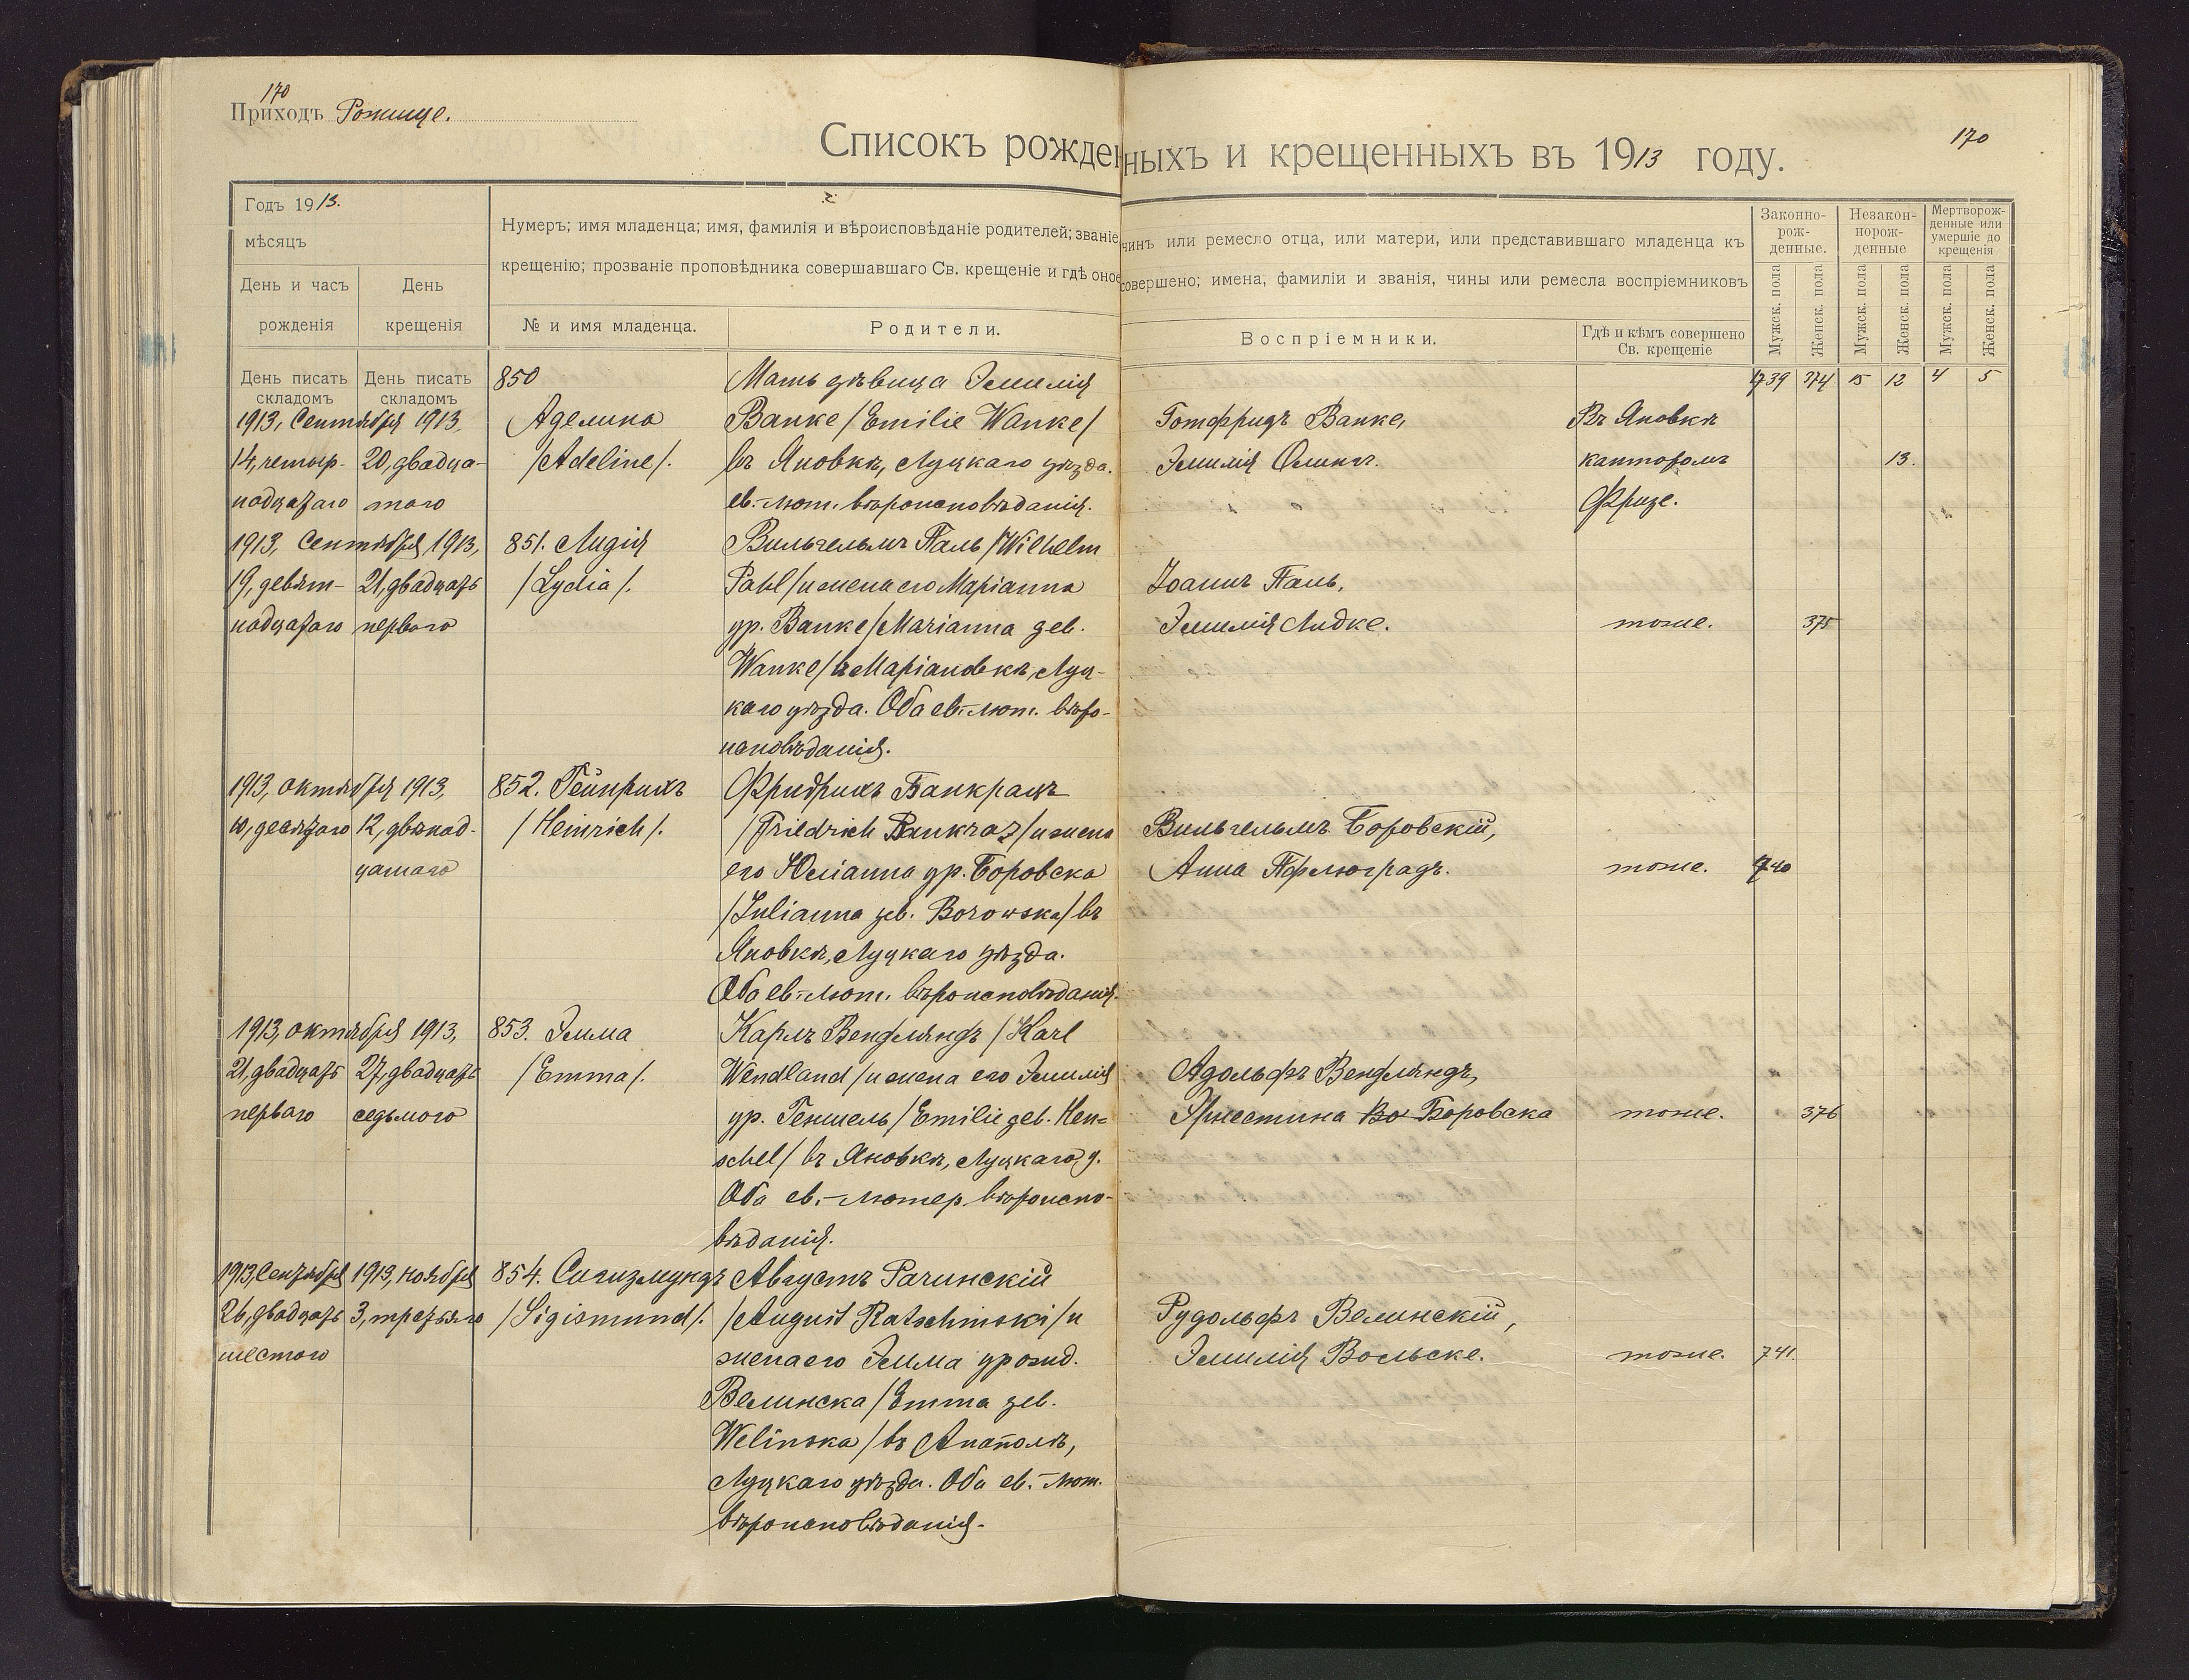 170
Приходъ Рожище.
170
Списокъ рожденныхъ и крещенныхъ въ 1913 году.
Годъ 1913.
мѣсяцъ
День и часъ рожденія
День крещенія
Нумеръ; имя младенца; имя, фамилія и вѣроисповѣданіе родителей; званіе, чинъ или ремесло отца, или матери, или представившаго младенца къ
крещенію; прозваніе проповѣдника совершавшаго Св. крещеніе и гдѣ оное совершено; имена, фамиліи и званія, чины или ремесла воспріемниковъ
№ и имя младенца.
Родители.
Воспріемники.
Гдѣ и кѣмъ совершено
Св. крещеніе
Законно-
рож-
денные.
Незакон-
норож-
денные
Мертворож-
денные или
умершіе до
крещенія
Мужск. пола
Женск. пола
Мужск. пола
Женск. пола
Мужск. пола
Женск. пола
День писать
складомъ
День писать
складомъ
739 374 15 12 4 5
1913, Сентября 1913,
14, четыр-
надцатаго
20, двадца-
таго
850
Аделина
/Adeline/.
Мать дѣвица Эмилія
Ванке /Emilie Wanke/
въ Яновкѣ, Луцкаго уѣзда.
ев.-лют. вѣроисповѣданія.
Готфридъ Ванке,
Эмилія
Въ Яновкѣ
канторомъ
Фризе.
13.
1913, Сентября 1913,
19, девят-
надцатаго
21, двадцать
перваго
851. Лидія
/Lydia/.
Вильгельмъ Паль /Wilhelm
Pahl/ и жена его Маріанна
ур. Ванке /Marianna geb.
Wanke/ въ Маріановкѣ, Луц-
каго уѣзда. Оба ев.-лют. вѣро-
исповѣданія.
Іоаннъ Паль,
Эмилія Лидке.
тоже.
375
1913, октября 1913,
10, десятаго
12, двѣнад-
цатаго
852. Гейнрихъ
/Heinrich/.
Фридрихъ Банкрацъ
/Friedrich Bankraz/ и жена
его Юліанна ур. Боровска
/Julianna geb. Borowska/ въ
Яновкѣ, Луцкаго уѣзда.
Оба ев.-лют. вѣроисповѣданія.
Вильгельмъ Боровскій,
Анна Пфлюградъ.
тоже.
740
1913, октября 1913,
21, двадцать
перваго
27, двадцать
седьмого
853. Эмма
/Emma/.
Карлъ Вендляндъ /Karl
Wendland/ и жена его Эмилія
ур. Геншель /Emilie geb. Hen-
schel/ въ Яновкѣ, Луцкаго у.
Оба ев.-лютер. вѣроиспо-
вѣданія.
Адольфъ Вендляндъ,
Эрнестина Во Боровска
тоже.
376
1913, Сентября 1913, ноября
26, двадцать
шестого
3, третьяго
854. Сигизмундъ
/Sigismund/.
Августъ Рачинскій
/August Ratschinski/ и
жена его Эмма урожд.
Велинска /Emma geb.
Welinska/ въ Анатолѣ,
Луцкаго уѣзда. Оба ев.-лют.
вѣроисповѣданія.
Рудольфъ Велинскій,
Эмилія Вольске.
тоже.
741.